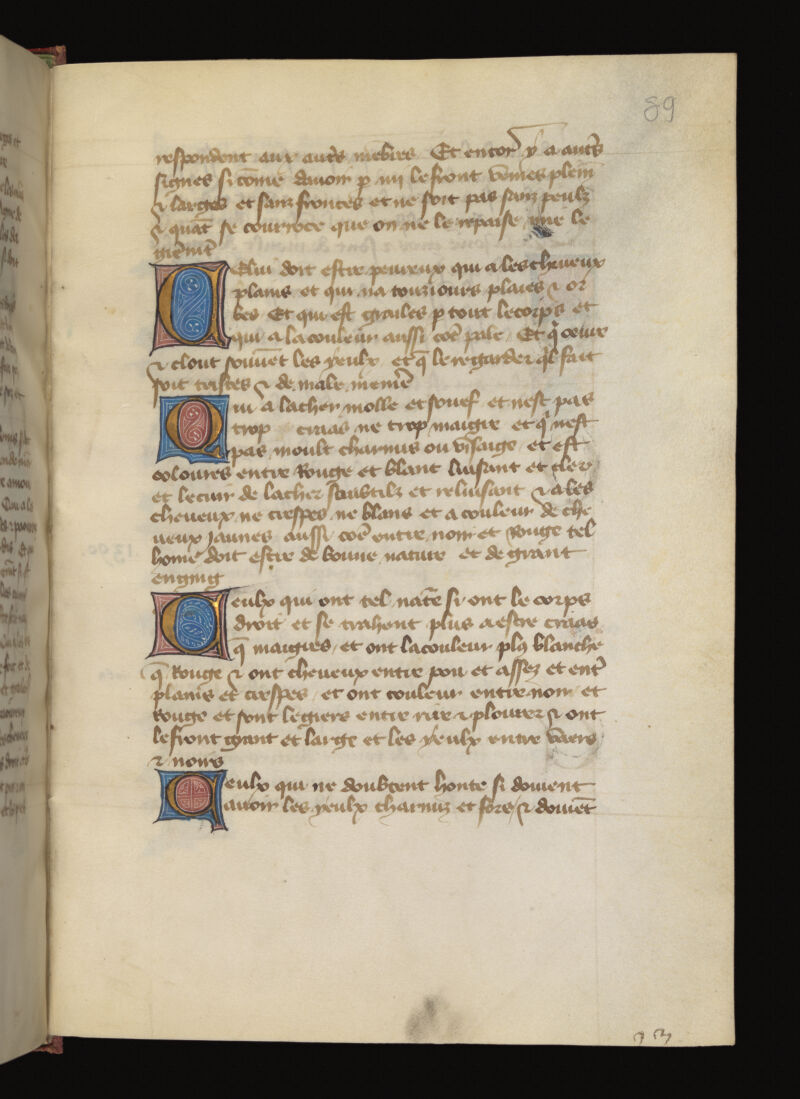 89
respondent aux autr̄s mēbres Et encor y a autr̄s
signes si cōme dauoir p̱ mi le front veines plein
⁊ larges et sanz fronces et ne soit pas sanz peulz
⁊ quāt se courroce que on ne le repaise mie le
gierem̄t
Celui doit estre peureux qui a les cheueux
plains et qui na touziours plaies ⁊ or
bes Et qui est grailes p̱ tout le corps et
qui a la couleur aussi cōe pale Et q̄ oeuure
⁊ clout souuēt les yeulx et q̄ le regarder q̄l fait
soit tristes ⁊ de male meniē
Qui a la cher molle et souef et nest pas
trop craas ne trop maigre et q̄ nest
pas moult charnus ou visaige et est
coloures entre Rouge et blant luisant et cler
et le cuir de la cher soubtilz et reluisant ⁊ a les
cheueux ne crespes ne blans et a couleur de che
ueux Jaunes aussi cōe entre noir et Rouge tel
home doit estre de bonne nature et de grant
enging
Ceulx qui ont tel natē si ont le corps
droit et se trahent plus a estre craas
q̄ maigres et ont la couleur plꝯ blanche
q̄ Rouge ⁊ ont cheueux entre pou et assez et ent̄
plains et crespes et ont couleur entre noir et
Rouge et sont legiers entre rire ⁊ plourer ⁊ ont
le front grant et large et les yeulx entre vairs
⁊ noirs
Ceulx qui ne doubtent honte si doiuent
auoir les yeulx charnuz et fors ⁊ doiuēt